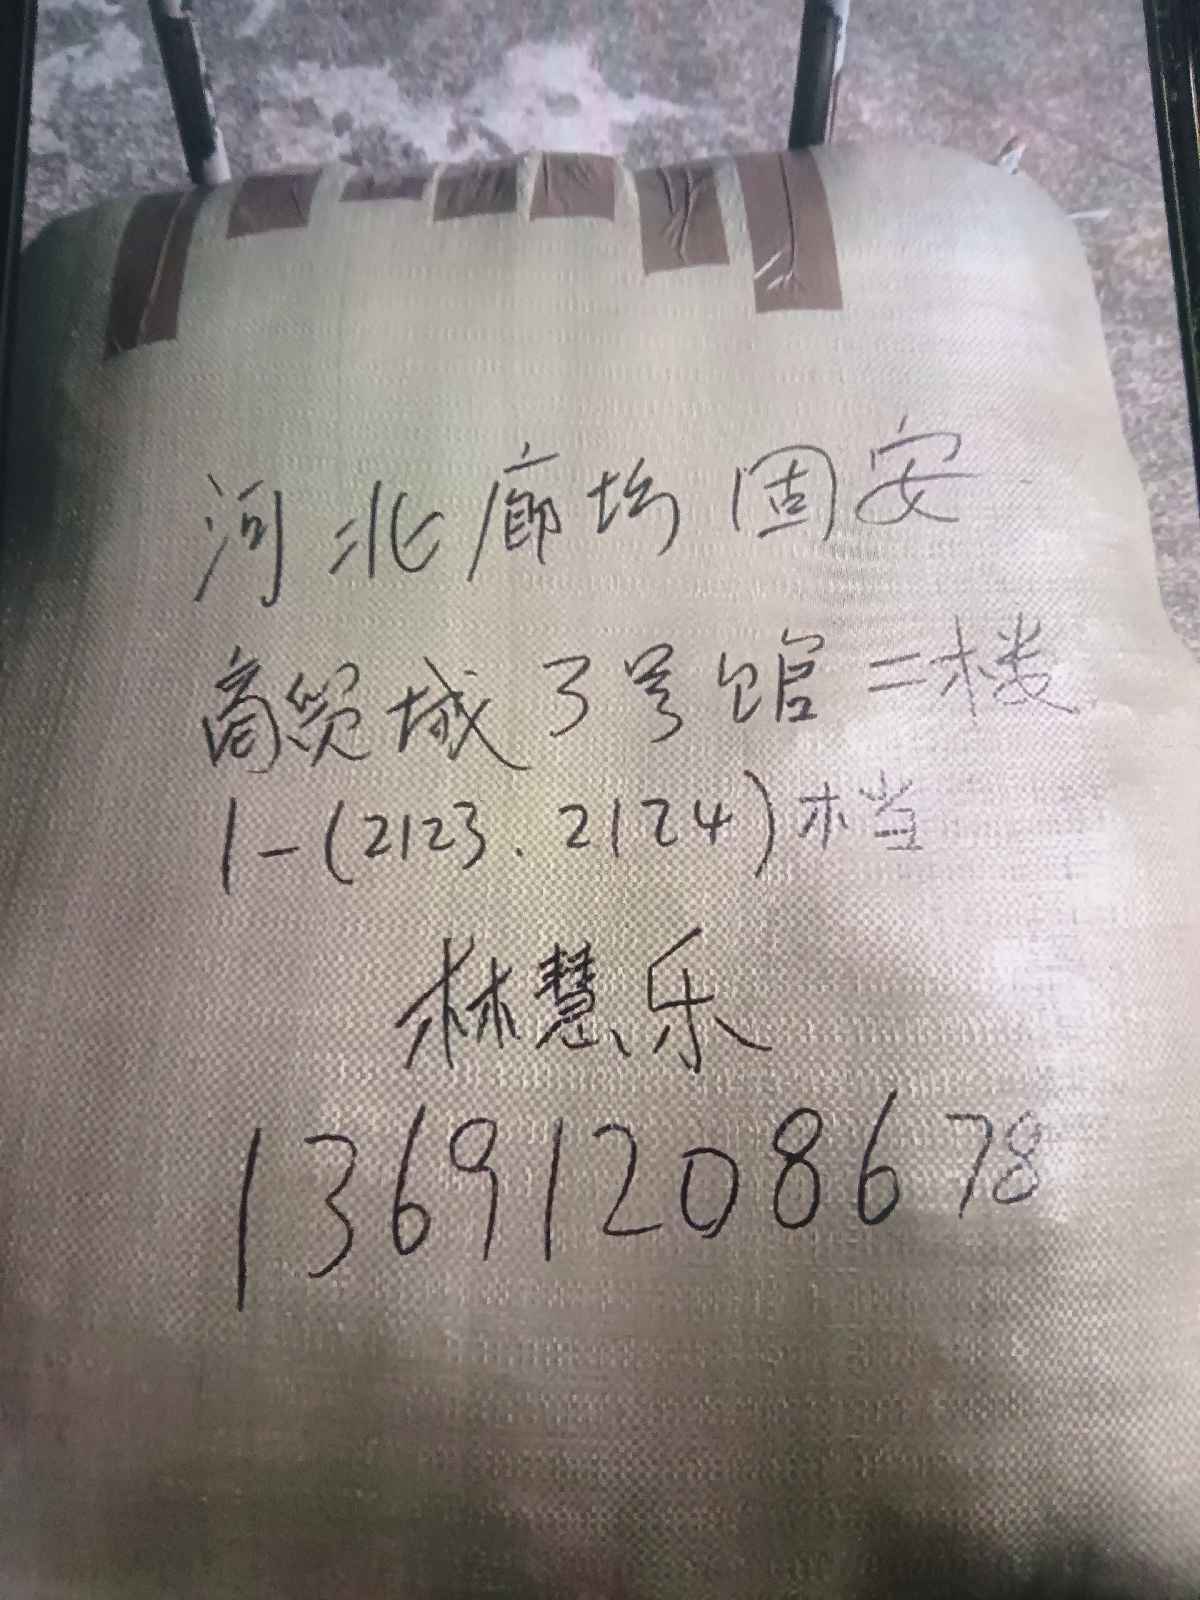 河北廊坊固安
商贸城3号馆二楼
1-(2123.2124)档
林慧乐
13691208678